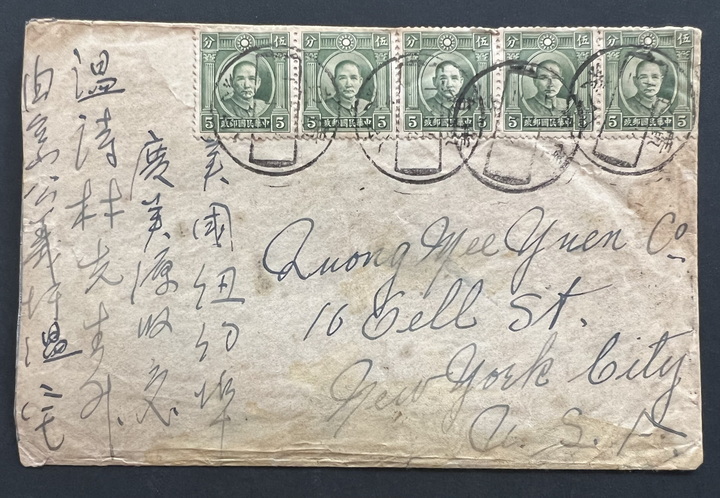 分 伍
5 中華民國郵政 5
分 伍
5 中華民國郵政 5
分 伍
5 中華民國郵政 5
分 伍
5 中華民國郵政 5
分 伍
5 中華民國郵政 5
美國紐約埠
廣美源收交
溫詩林先生
溫
Quong Mee Yuen Co
16 Pell St.
New York City
U. S. A.